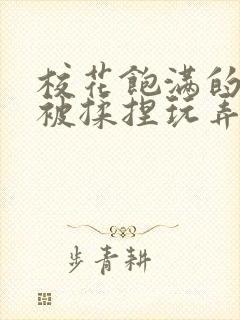 校花飽满的
被揉捏玩弄
步青耕